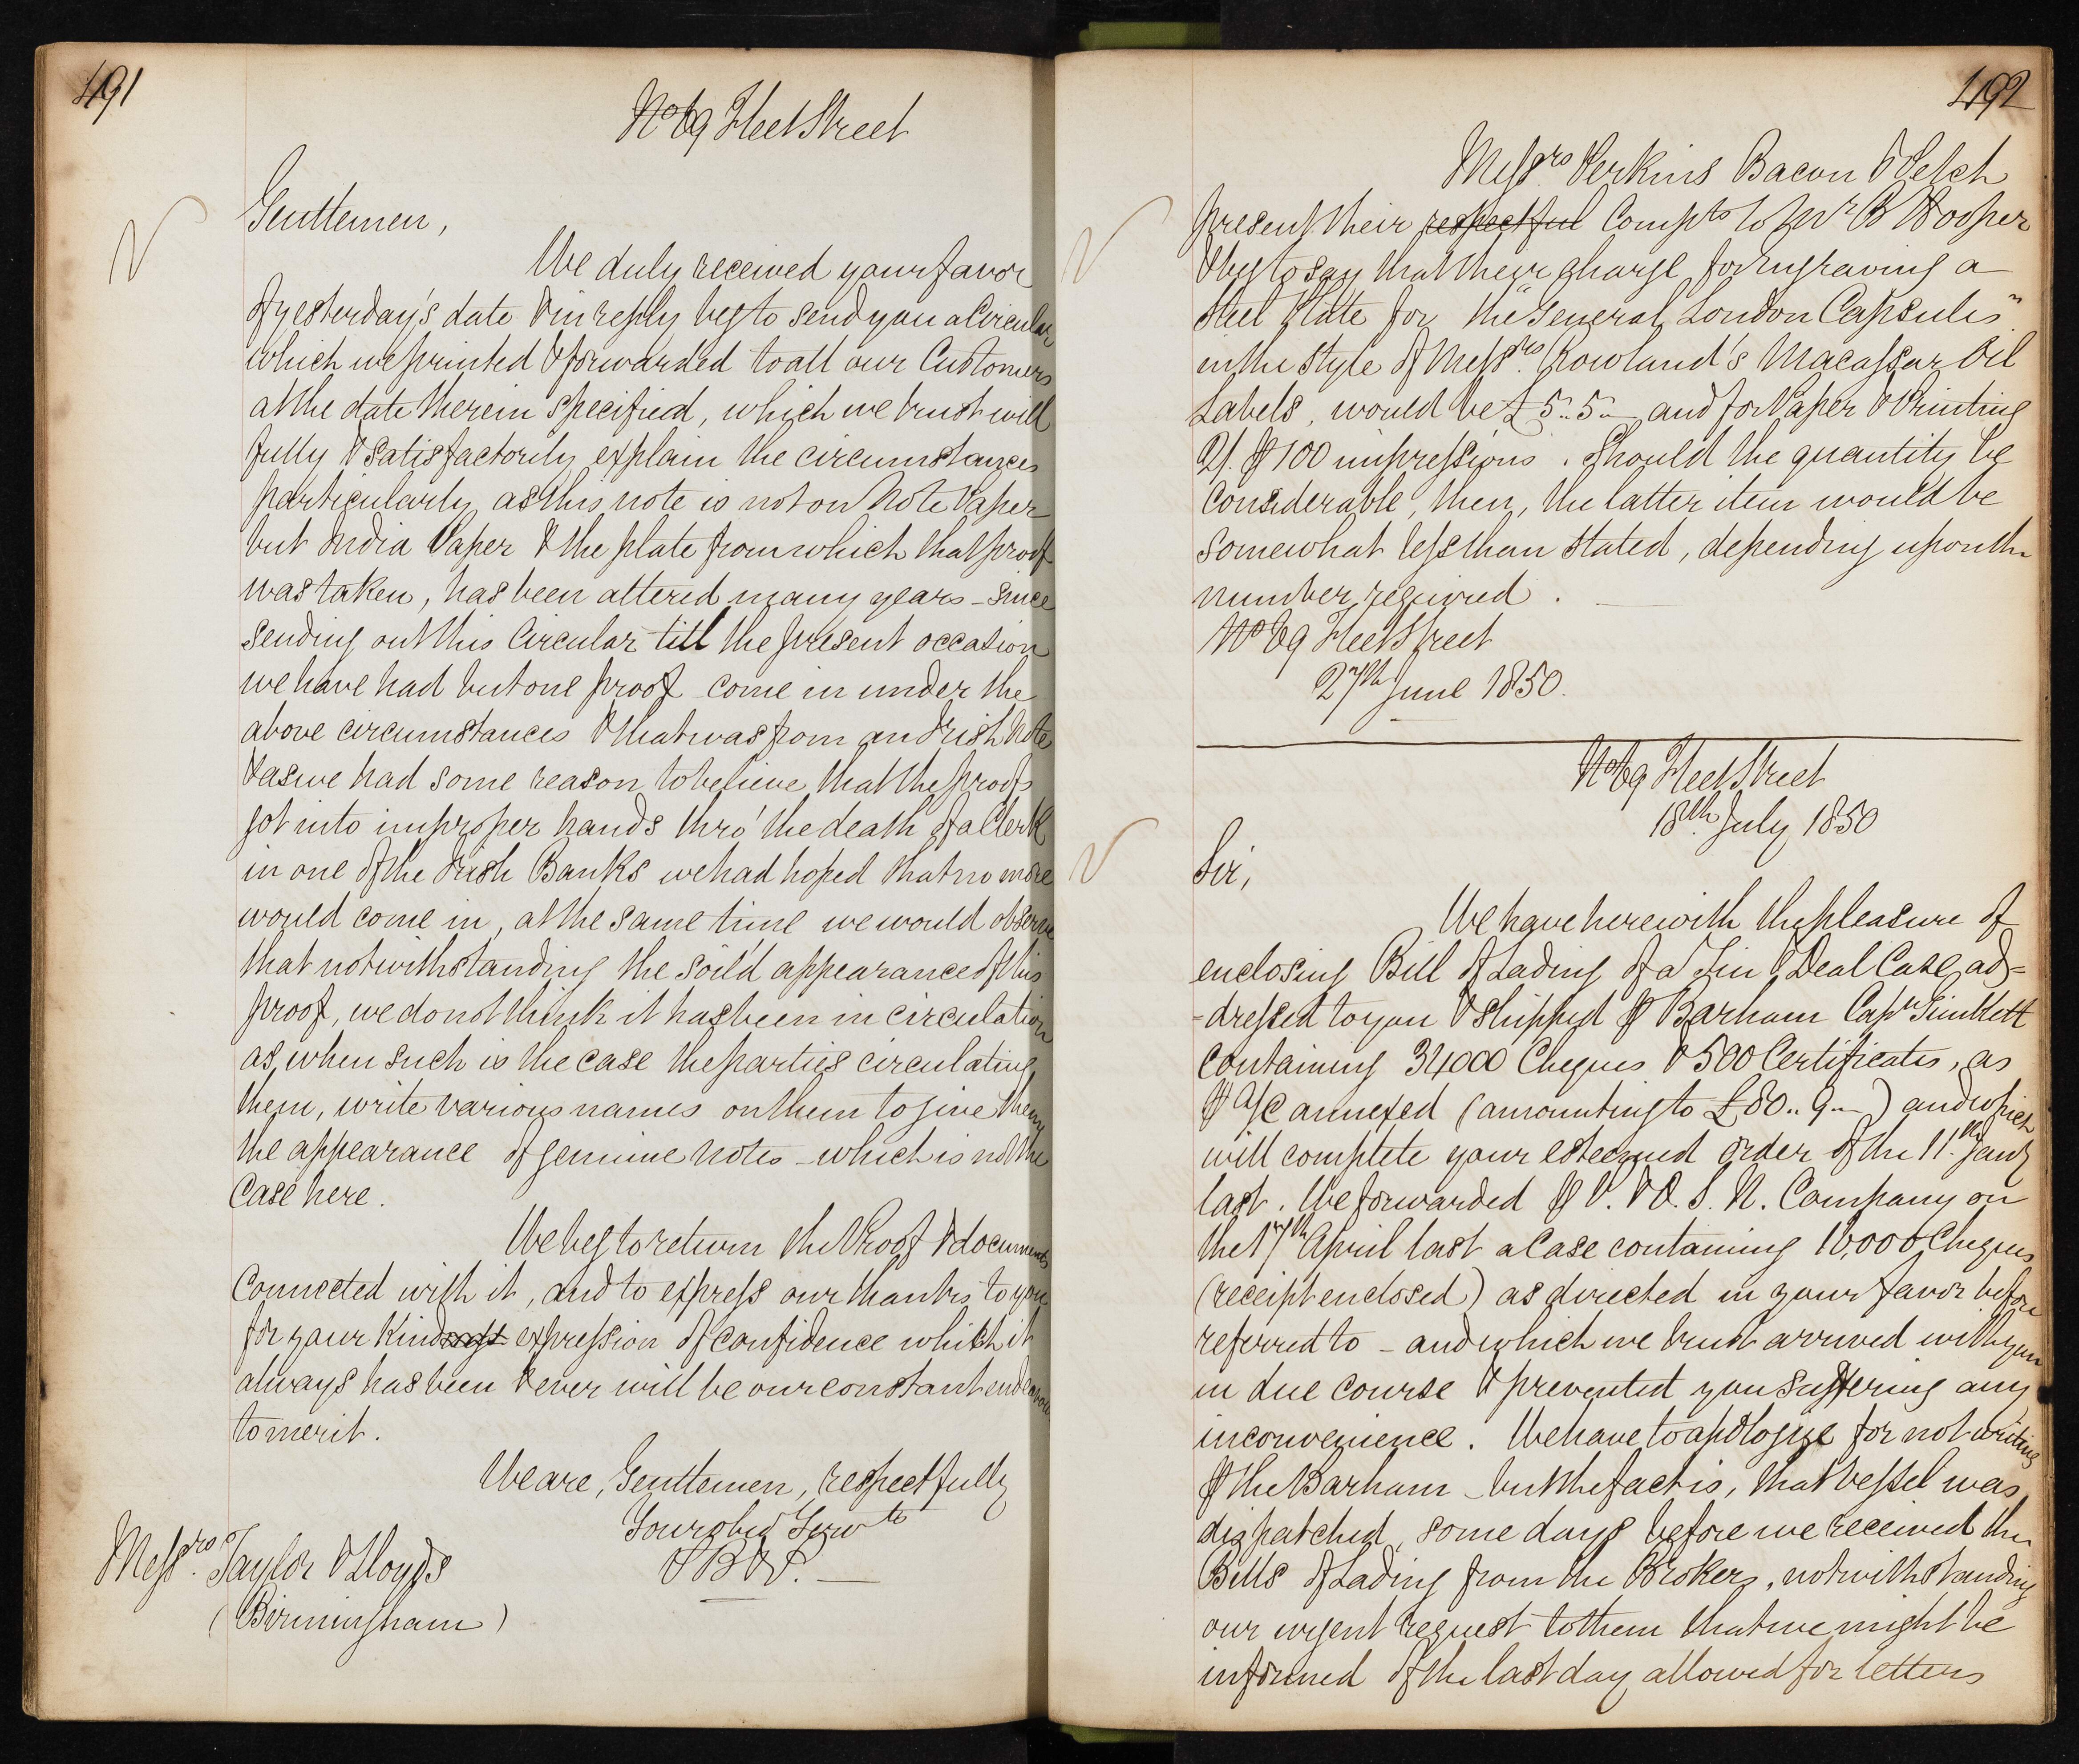 491
No 69 Fleet Street
Gentlemen,
We duly received your favor
of yesterday's date & in reply beg to send you a Circular
which we printed & forwarded to all our Customers
at the date therein specified, which we trust will
fully & satisfactorily explain the circumstances
particularly as this note is not on Note Paper
but India Paper & the plate from which that proof
was taken, has been altered many years - since
sending out this Circular till the present occasion
we have had but one proof come in under the
above circumstances & that was from an Irish Note
& as we had some reason to believe that the proofs
got into improper hands thro' the death of a Clerk
in one of the Irish Banks we had hoped that no more
would come in, at the same time we would observe
that notwithstanding the soil'd appearance of this
proof, we do not think it has been in circulation
as, when such is the case the parties circulating
them, write various names on them to give them
the appearance of genuine notes - which is not the
Case here.
We beg to return the Proof & documents
Connected with it, and to express our thanks to you
for your kindness expression of confidence which it
always has been & ever will be our constant endeavour
to merit.
We are, Gentlemen, respectfully
Your obed Servts
P B & P. —
Messrs. Taylor & Lloyds
(Birmingham)
492
Messrs Perkins Bacon & Petch
present their respectful Compts to Mr B Hooper
& beg to say that their charge for Engraving a
Steel Plate for the "General London Capsules"
in the style of Messrs. Rowland's Macassar Oil
Labels, would be £5..5.. — and for Paper & Printing
2/. ⅌ 100 impressions. Should the quantity be
considerable, then, the latter item would be
somewhat less than stated, depending upon the
number required. —
No 69 Fleet Street
27th June 1850.
No 69 Fleet Street
18th July 1850
Sir,
We have herewith the pleasure of
enclosing Bill of Lading of a Tin & Deal Case, ad=
-dressed to you & shipped ⅌ Barham Capn Gimblett
containing 34000 Cheques & 500 Certificates, as
⅌ a/c annexed (amounting to £80..9..—) and which
will complete your esteemed order of the 11th. Jany
last. We forwarded ⅌ P. & O. S. N. Company on
the 17th April last a Case containing 10,000 Cheques
(receipt enclosed) as directed in your favor before
referred to - and which we trust arrived with you
in due course & prevented you suffering any
inconvenience. We have to apologize for not writing
⅌ the Barham - but the fact is, that vessel was
dispatched, some days before we received the
Bills of Lading from the Brokers, notwithstanding
our urgent request to them that we might be
informed of the last day allowed for letters